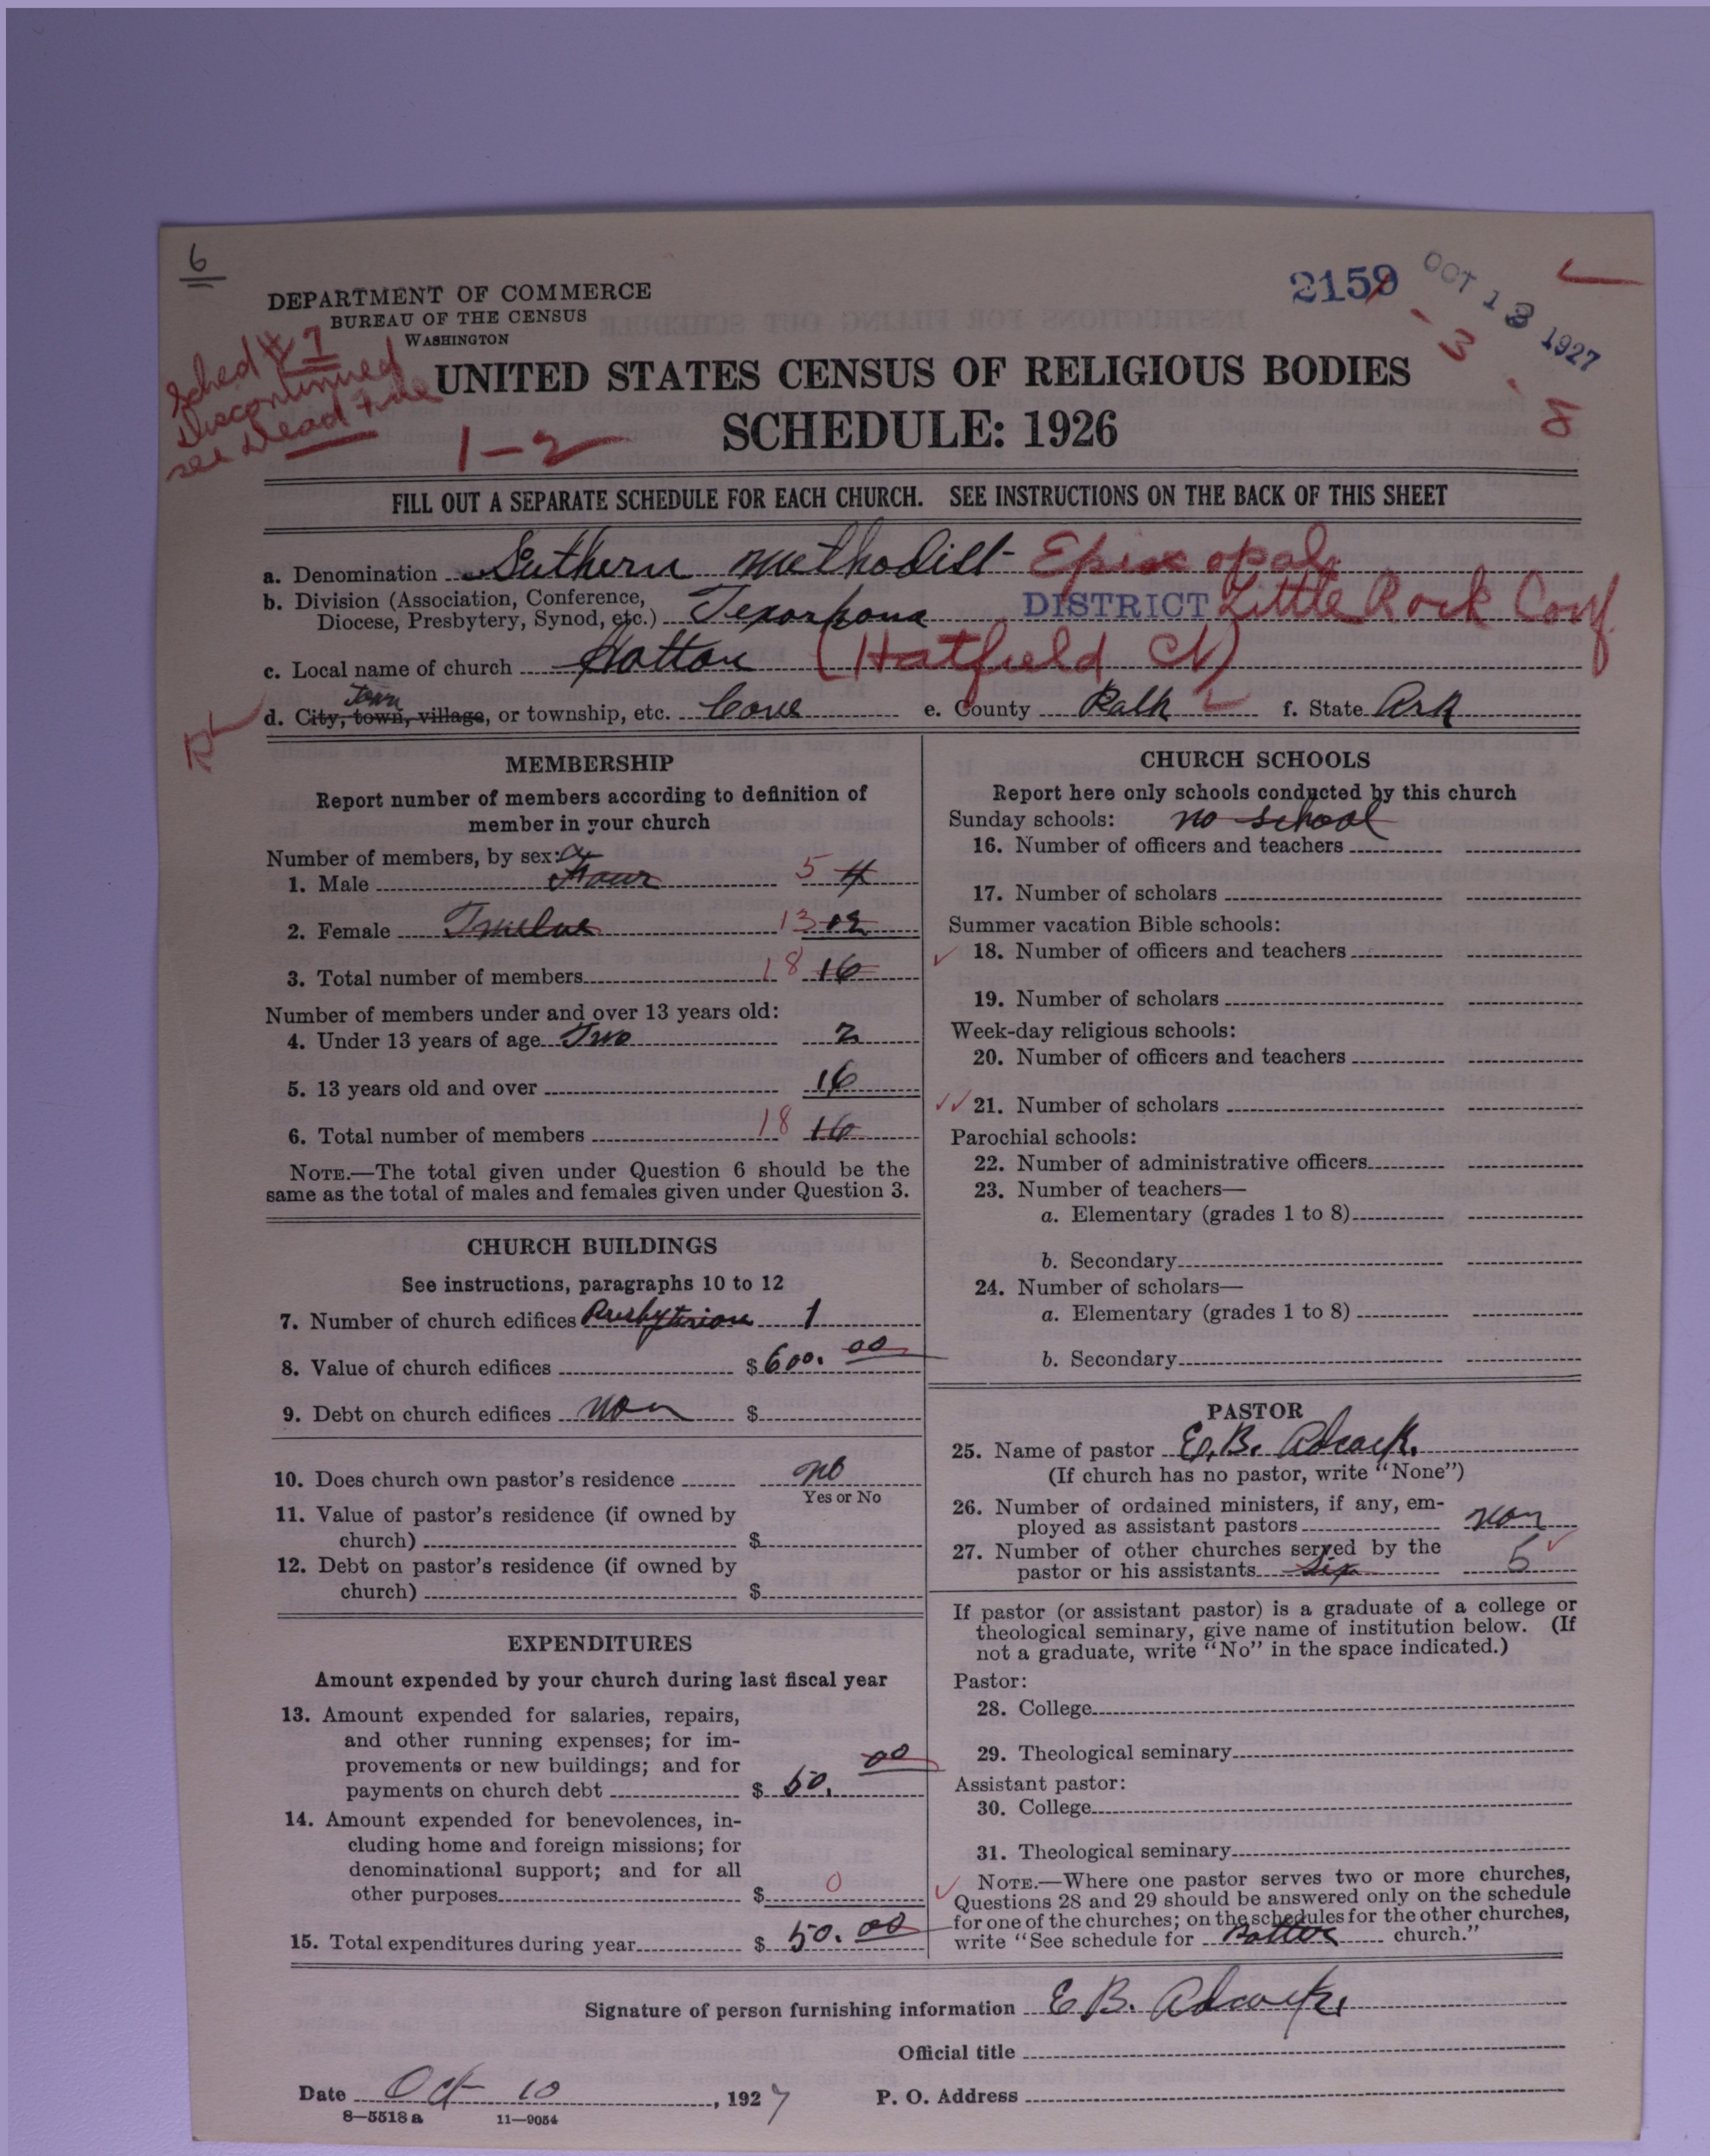 6
DEPARTMENT OF COMMERCE
BUREAU OF THE CENSUS
WASHINGTON
2159
OCT 13 1927
1 - 3 - 8
Sched # 7
Discontinued
see Dead File
1-2
UNITED STATES CENSUS OF RELIGIOUS BODIES
SCHEDULE: 1926
FILL OUT A SEPARATE SCHEDULE FOR EACH CHURCH. SEE INSTRUCTIONS ON THE BACK OF THIS SHEET
a. Denomination Suthern Methodist Episcopal
b. Division (Association, Conference,
Diocese, Presbytery, Synod, etc.) Texarkana DISTRICT Little Rock Conf.
c. Local name of church Hatton (Hatfield Ct)
Town
d. City, town, village, or township, etc. Cove e. County Polk f. State Ark
MEMBERSHIP
Report number of members according to definition of
member in your church
Number of members, by sex:
1. Male Four 5 4
2. Female Twelve 13 12
3. Total number of members 18 16
Number of members under and over 13 years old:
4. Under 13 years of age Two 2
5. 13 years old and over 16
6. Total number of members 18 16
NOTE.—The total given under Question 6 should be the
same as the total of males and females given under Question 3.
CHURCH BUILDINGS
See instructions, paragraphs 10 to 12
7. Number of church edifices Presbyterian 1
8. Value of church edifices $600.00
9. Debt on church edifices Non $
10. Does church own pastor's residence no
Yes or No
11. Value of pastor's residence (if owned by
church) $
12. Debt on pastor's residence (if owned by
church) $
EXPENDITURES
Amount expended by your church during last fiscal year
13. Amount expended for salaries, repairs,
and other running expenses; for im-
provements or new buildings; and for
payments on church debt $ 50.00
14. Amount expended for benevolences, in-
cluding home and foreign missions; for
denominational support; and for all
other purposes $ 0
15. Total expenditures during year $ 50.00
CHURCH SCHOOLS
Report here only schools conducted by this church
Sunday schools: no school
16. Number of officers and teachers
17. Number of scholars
Summer vacation Bible schools:
18. Number of officers and teachers
19. Number of scholars
Week-day religious schools:
20. Number of officers and teachers
21. Number of scholars
Parochial schools:
22. Number of administrative officers
23. Number of teachers—
a. Elementary (grades 1 to 8)
b. Secondary
24. Number of scholars—
a. Elementary (grades 1 to 8)
b. Secondary
PASTOR
25. Name of pastor E. B. Adcock.
(If church has no pastor, write "None")
26. Number of ordained ministers, if any, em-
ployed as assistant pastors non
27. Number of other churches served by the
pastor or his assistants Six 5
If pastor (or assistant pastor) is a graduate of a college or
theological seminary, give name of institution below. (If
not a graduate, write "No" in the space indicated.)
Pastor:
28. College
29. Theological seminary
Assistant pastor:
30. College
31. Theological seminary
NOTE.—Where one pastor serves two or more churches,
Questions 28 and 29 should be answered only on the schedule
for one of the churches; on the schedules for the other churches,
write "See schedule for church."
Signature of person furnishing information E B. Adcock.
Official title
Date Oct 10, 1927 P. O. Address
8—5518 a 11—9054